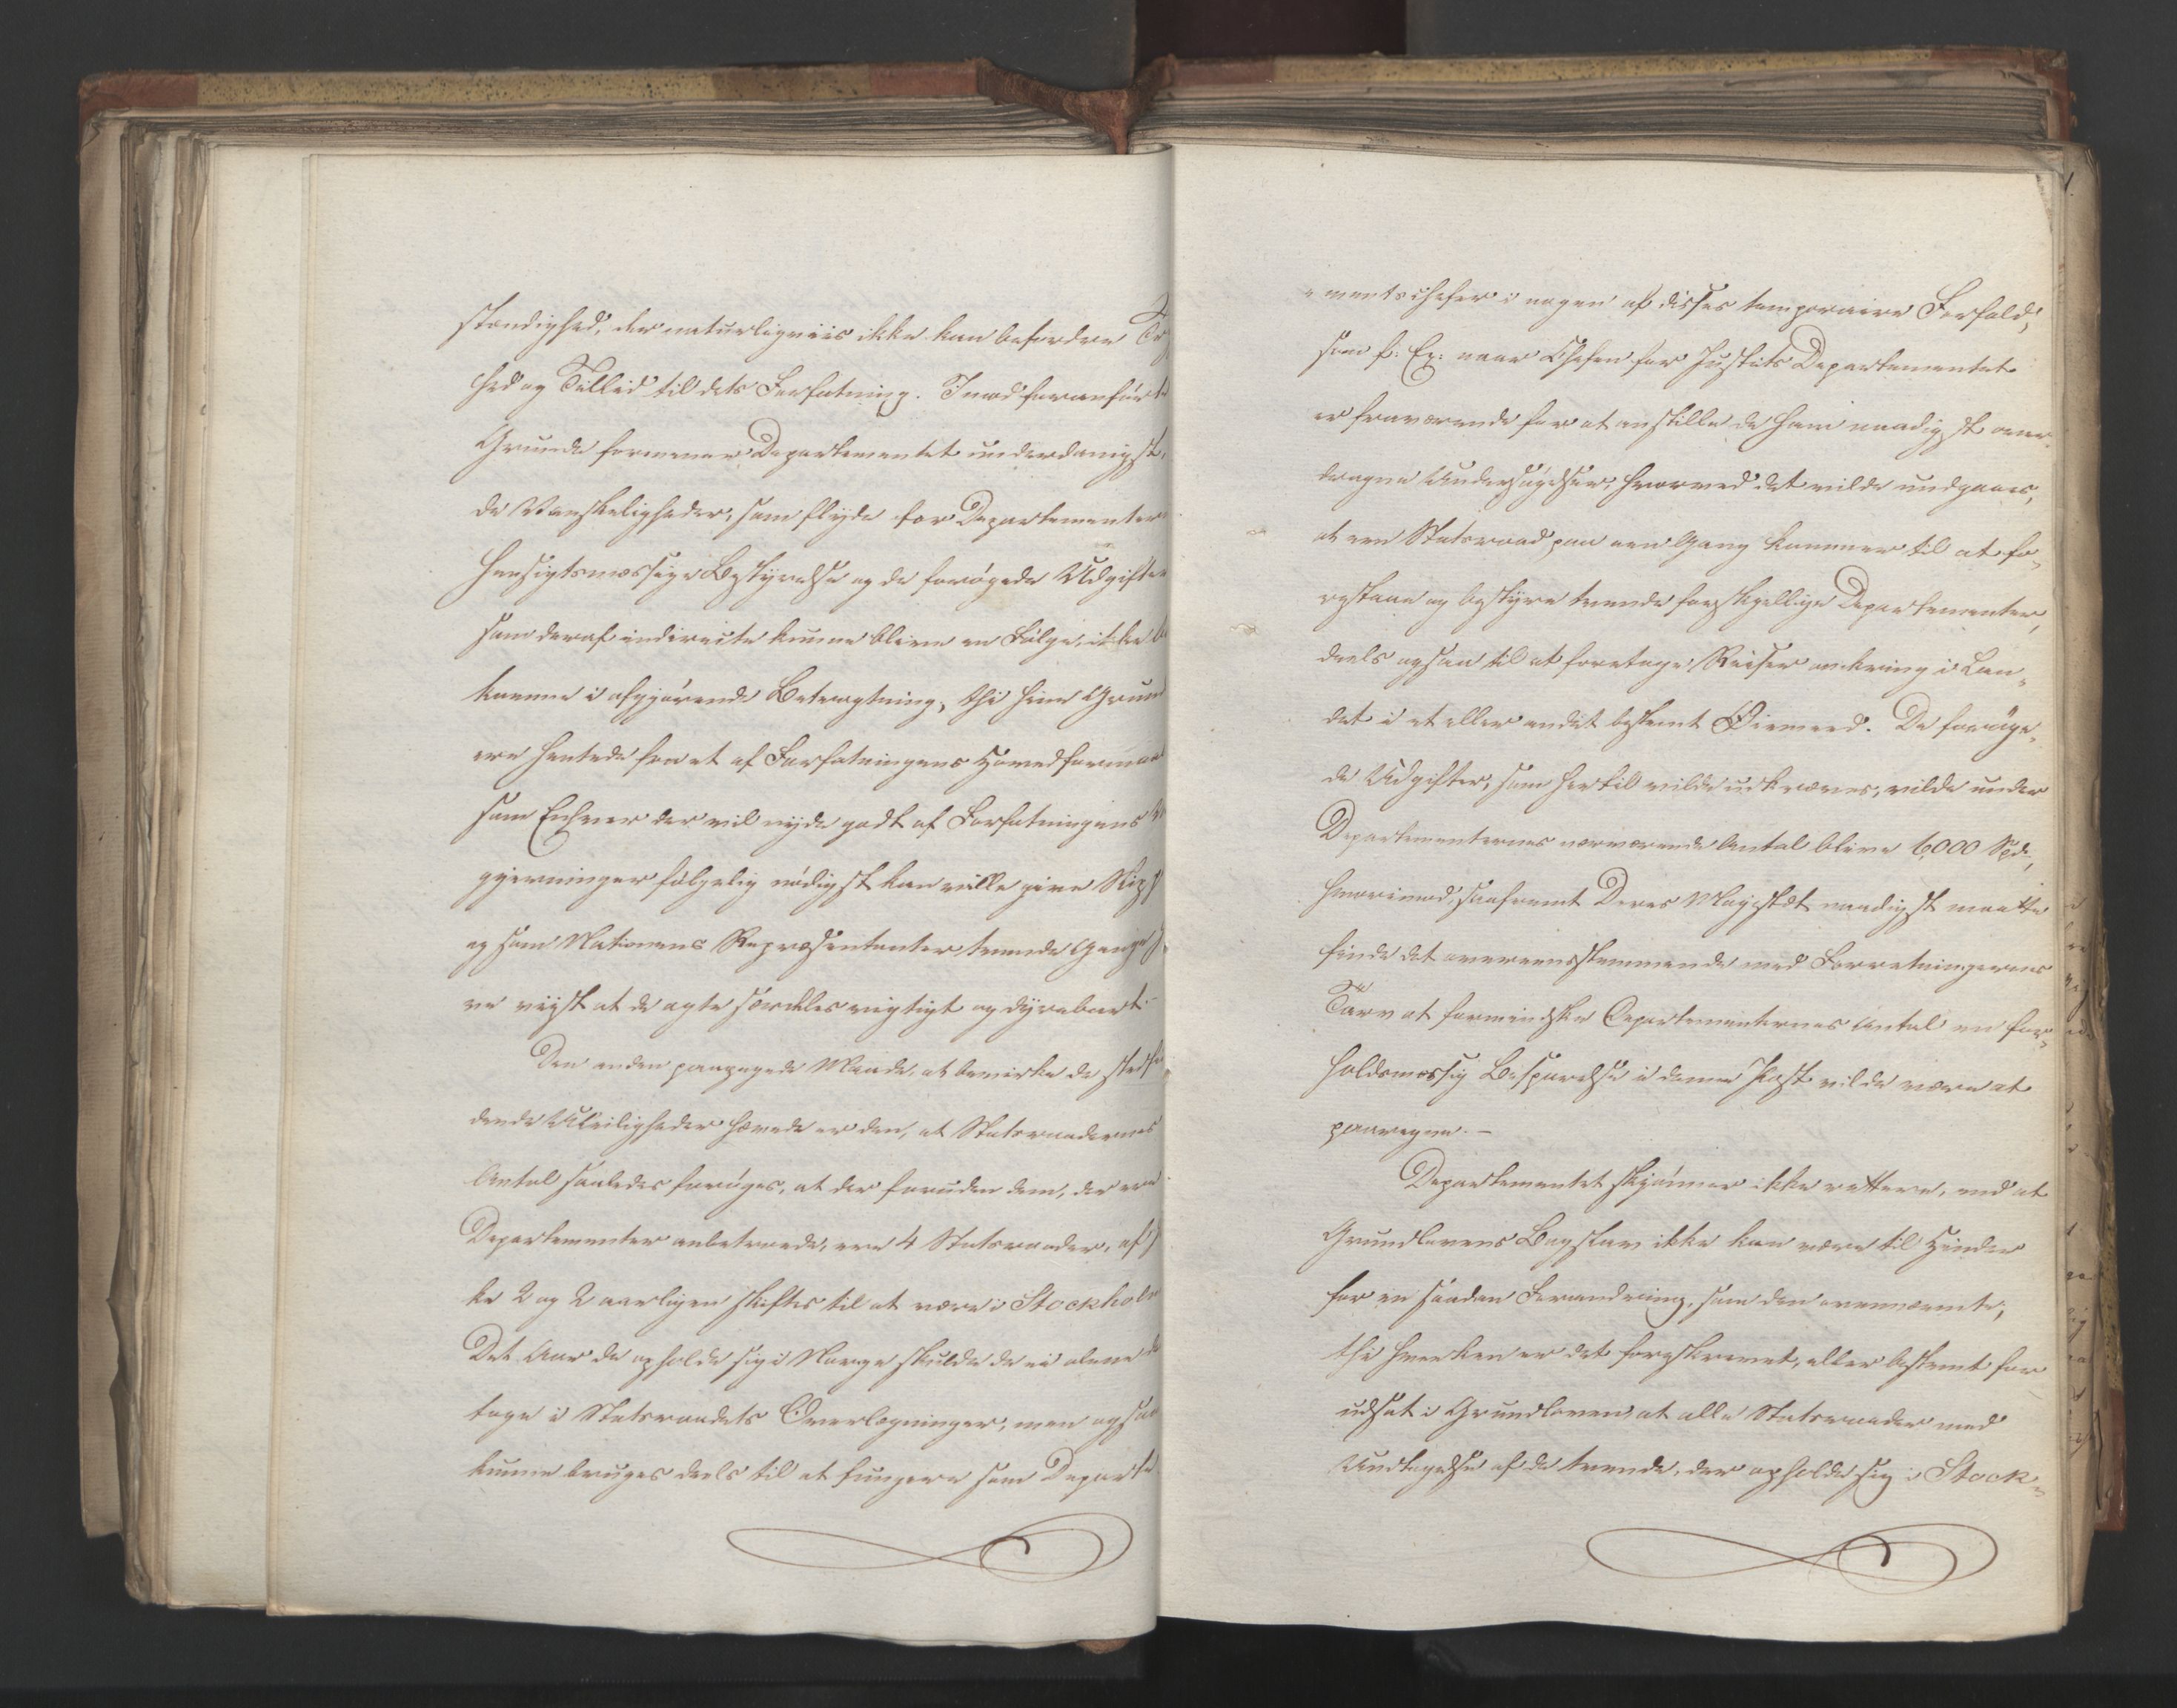 stændighed, der naturligviis ikke kan befordre
hed og Tillid til dets Forfatning. Imod foranførte
Grunde formener Departementet underdanigst,
de Vanskeligheder, som flyde for Departementer
hensigtsmæssige Bestyrelse og de forøgede Udgifter
som deraf indirecte kunne blive en Følge, ikke
komme i afgjørende Betragtning, thi hine Grund
ere hentede fra et af Forfatningens Hovedformaal
som Enhver der vil nyde godt af Forfatningens
gjerninger følgelig nødigst kan ville give Slip
og som Nationens Repræsentanter trende Gange
ve viist at de agte særdeles vigtigt og dyrebart.-
Den anden paapegede Maade, at bevirke de stedfin
dende Uleiligheder hævede er den, at Statsraadernes
Antal saaledes forøges, at der foruden dem, der ere
Departementer anbetroede, ere 4 Statsraader, af
ke 2 og 2 aarligen skiftes til at være i Stockholm
Det Aar de opholde sig i Norge skulde de ei alene de
tage i Statsraadets Overlægninger, men ogsaa
kunne bruges deels til at fungere som Departe
"mentschefer i nogen af disses temporaire Forfald,
som f: Ex: naar Chefen for Justits Departementet
er fraværende for at anstille de ham naadigst over-
dragne Undersøgelser, hvorved det vilde undgaaes,
at een Statsraad paa een Gang kommer til at fo-
restaae og bestyre tvende forskjellige Departementer,
deels ogsaa til at foretage Reiser omkring i Lan-
det i et eller andet bestemt Øiemeed. De forøge-
de Udgifter, som hertil vilde udkræves, vilde under
Departementernes nærværende Antal blive 6,000 Spd:,
hvorimod, saafremt Deres Majestæt naadigst maatte
finde det overeensstemmende med Forretningernes
Tarv at formindske Departementernes Antal en for-
holdsmæssig Besparelse i denne Post vilde være at
paaregne. -
Departementet skjønner ikke rettere, end at
Grundlovens Bogstav ikke kan være til Hinder
for en saadan Forandring, som den ovennævnte,
thi hverken er det foreskrevet, eller bestemt for
udsat i Grundloven, at alle Statsraader med
Undtagelse af de tvende, der opholde sig i Stock-